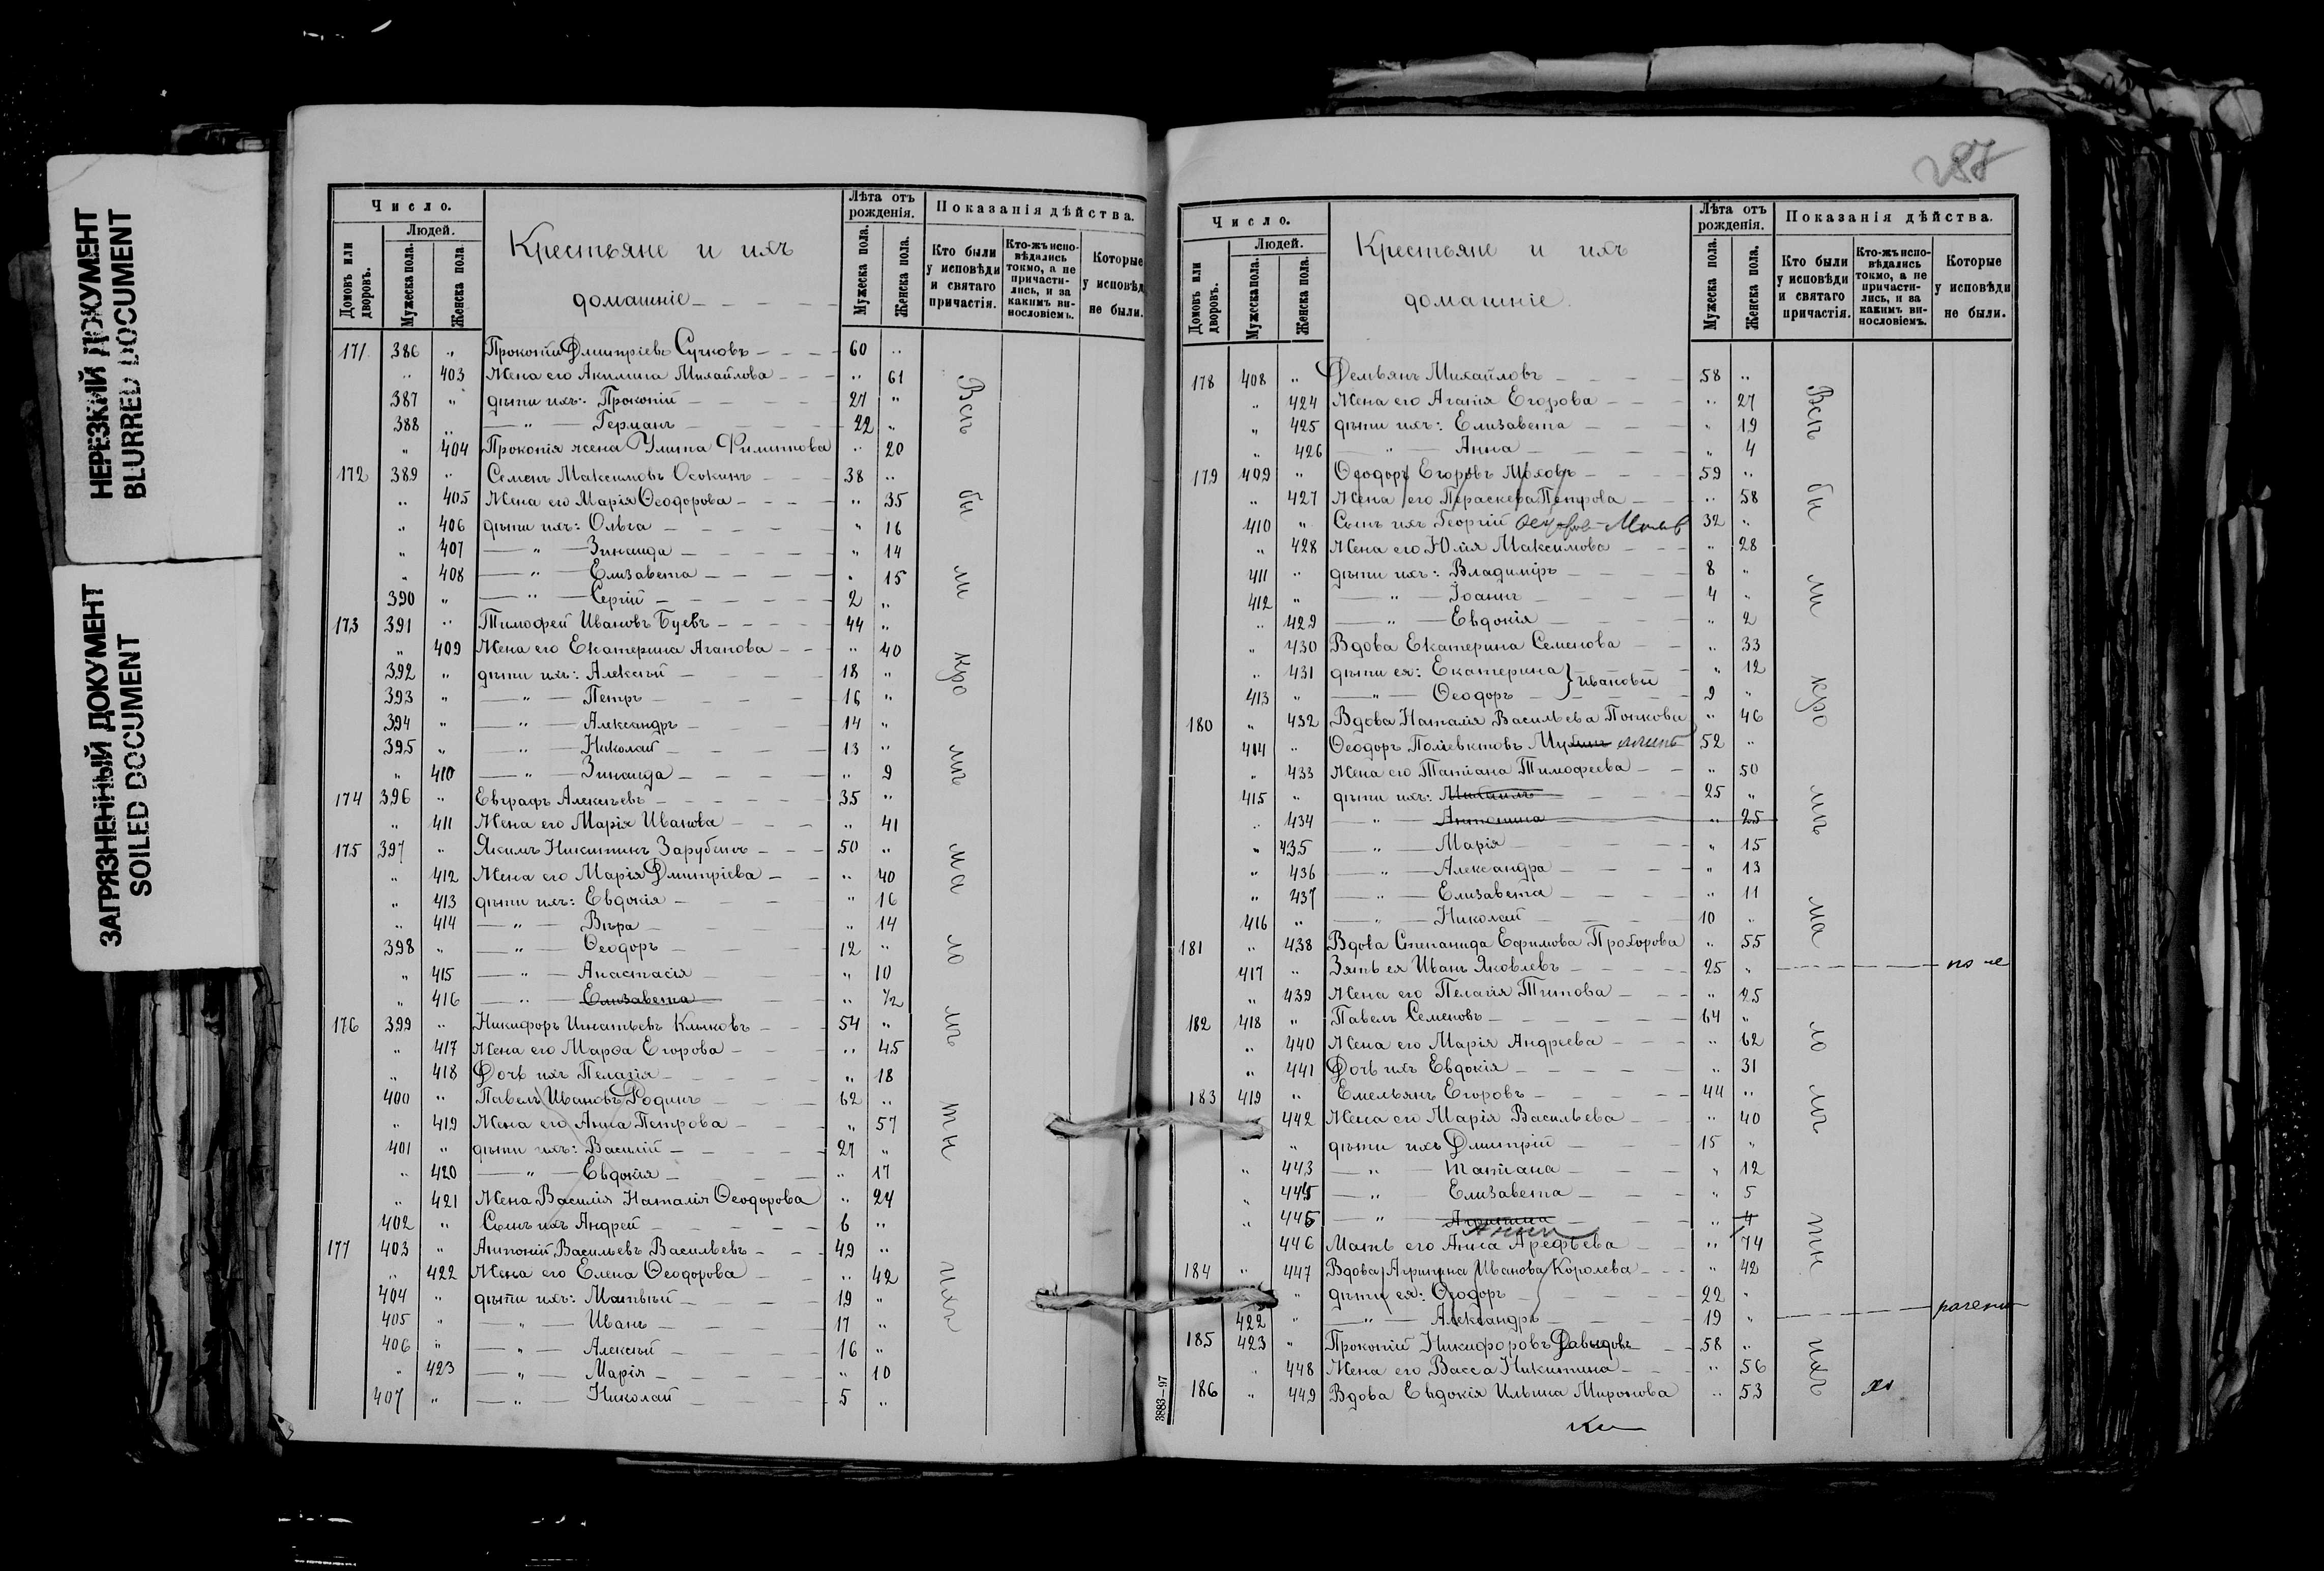 НЕРЕЗКИЙ ДОКУМЕНТ
BLURRED DOCUMENT
ЗАГРЯЗНЕННЫЙ ДОКУМЕНТ
SOILED DOCUMENT
Число.
Людей.
Домовъ или дворовъ.
Мужеска пола.
Женска пола
Крестьяне и ихъ
домашніе
Лѣта отъ рожденія.
Мужеска пола.
Женска пола.
Показанія дѣйства.
Кто были у исповѣди и святаго причастія.
Кто-жъ исповѣдались токмо, а не причастились, и за какимъ винословіемъ.
Которые у исповѣд не были.
171 386 „ Прокопій Дмитріевъ Сучковъ 60 „
„ 403 Жена его Акилина Михайлова „ 61
387 „ дѣти ихъ: Прокопій 27 „
388 „ Германъ 22 „
„ 404 Прокопія жена Улита Филиппова „ 20
172 389 „ Семенъ Максимовъ Осокинъ 38 „
„ 405 Жена его Марія Ѳеодорова „ 35
„ 406 дѣти ихъ: Ольга „ 16
„ 407 „ Зинаида „ 14
„ 408 „ Елизавета „ 15
390 „ „ Сергій 2 „
173 391 „ Тимофей Ивановъ Буевъ 44 „
„ 409 Жена его Екатерина Агапова „ 40
392 „ дѣти ихъ: Алексѣй 18 „
393 „ „ Петръ 16 „
394 „ „ Александръ 14 „
395 „ „ Николай 13 „
„ 410 „ Зинаида „ 9
174 396 „ Евграфъ Алексѣевъ 35 „
„ 411 Жена его Марія Иванова „ 41
175 397 „ Якимъ Никитинъ Зарубинъ 50 „
„ 412 Жена его Марія Дмитріева „ 40
„ 413 дѣти ихъ: Евдокія „ 16
„ 414 „ Вѣра „ 14
398 „ „ Ѳеодоръ 12 „
„ 415 „ Анастасія „ 10
„ 416 „ Елизавета „ 1/2
176 399 „ Никифоръ Игнатьевъ Клыковъ 54 „
„ 417 Жена его Марѳа Егорова „ 45
„ 418 Дочь ихъ Пелагія „ 18
400 „ Павелъ Ивановъ Родинъ 62 „
„ 419 Жена его Анна Петрова „ 57
401 „ дѣти ихъ: Василій 27 „
„ 420 „ Евдокія „ 17
„ 421 Жена Василія Наталія Ѳеодорова „ 24
402 „ Сынъ ихъ Андрей 6 „
177 403 „ Антоній Васильевъ Васильевъ 49 „
„ 422 Жена его Елена Ѳеодорова „ 42
404 „ дѣти ихъ: Матвѣй 19 „
405 „ „ Иванъ 17 „
406 „ „ Алексѣй 16 „
„ 423 „ Марія „ 10
407 „ „ Николай 5 „
Всѣ бы ли кро мѣ ма ло лѣ тн ихъ
287
Число.
Людей.
Домовъ или дворовъ.
Мужеска пола.
Женска пола.
Крестьяне и ихъ
домашніе.
Лѣта отъ рожденія.
Мужеска пола.
Женска пола.
Показанія дѣйства.
Кто были у исповѣди и святаго причастія.
Кто-жъ исповѣдались токмо, а не причастились, и за какимъ винословіемъ.
Которые у исповѣди не были.
178 408 „ Демьянъ Михайловъ 58 „
„ 424 Жена его Агапія Егорова „ 27
„ 425 дѣти ихъ: Елизавета „ 19
„ 426 „ Анна „ 4
179 409 „ Ѳеодоръ Егоровъ Моховъ 59 „
„ 427 Жена его Параскева Петрова „ 58
410 „ Сынъ ихъ Георгій 32 „
„ 428 Жена его Юлія Максимова „ 28
411 „ дѣти ихъ: Владиміръ 8 „
412 „ „ Іоаннъ 4 „
„ 429 „ Евдокія „ 2
„ 430 Вдова Екатерина Семенова „ 33
„ 431 дѣти ея: Екатерина } Ивановы „ 12
413 „ „ Ѳеодоръ 9 „
180 „ 432 Вдова Наталія Васильева Попкова „ 46
414 „ Ѳеодоръ Поліевктовъ 52 „
„ 433 Жена его Татіана Тимофеева „ 50
415 „ дѣти ихъ: Михаилъ 25 „
„ 434 „ Антонина „ 25
„ 435 „ Марія „ 15
„ 436 „ Александра „ 13
„ 437 „ Елизавета „ 11
416 „ „ Николай 10 „
181 „ 438 Вдова Степанида Ефимова Прохорова „ 55
417 „ Зять ея Иванъ Яковлевъ 25 „
„ 439 Жена его Пелагія Титова „ 25
182 418 „ Павелъ Семеновъ 64 „
„ 440 Жена его Марія Андреева „ 62
„ 441 Дочь ихъ Евдокія „ 31
183 419 „ Емельянъ Егоровъ 44 „
442 Жена его Марія Васильева „ 40
„ дѣти ихъ Дмитрій 15 „
„ 443 „ Татіана „ 12
„ 445 „ Елизавета „ 5
„ 445 „ „ 4
446 Мать его Анна Арефьева „ 74
184 „ 447 Вдова Агрипина Иванова Королева „ 42
„ дѣти ея: Ѳеодоръ 22 „
422 „ „ Александръ 19 „
185 423 „ Прокопій Никифоровъ Давыдовъ 58 „
„ 448 Жена его Васса Никитина „ 56
186 „ 449 Вдова Евдокія Ильина Миронова „ 53
Всѣ бы ли кро мѣ ма ло лѣ тн ихъ
3883—97